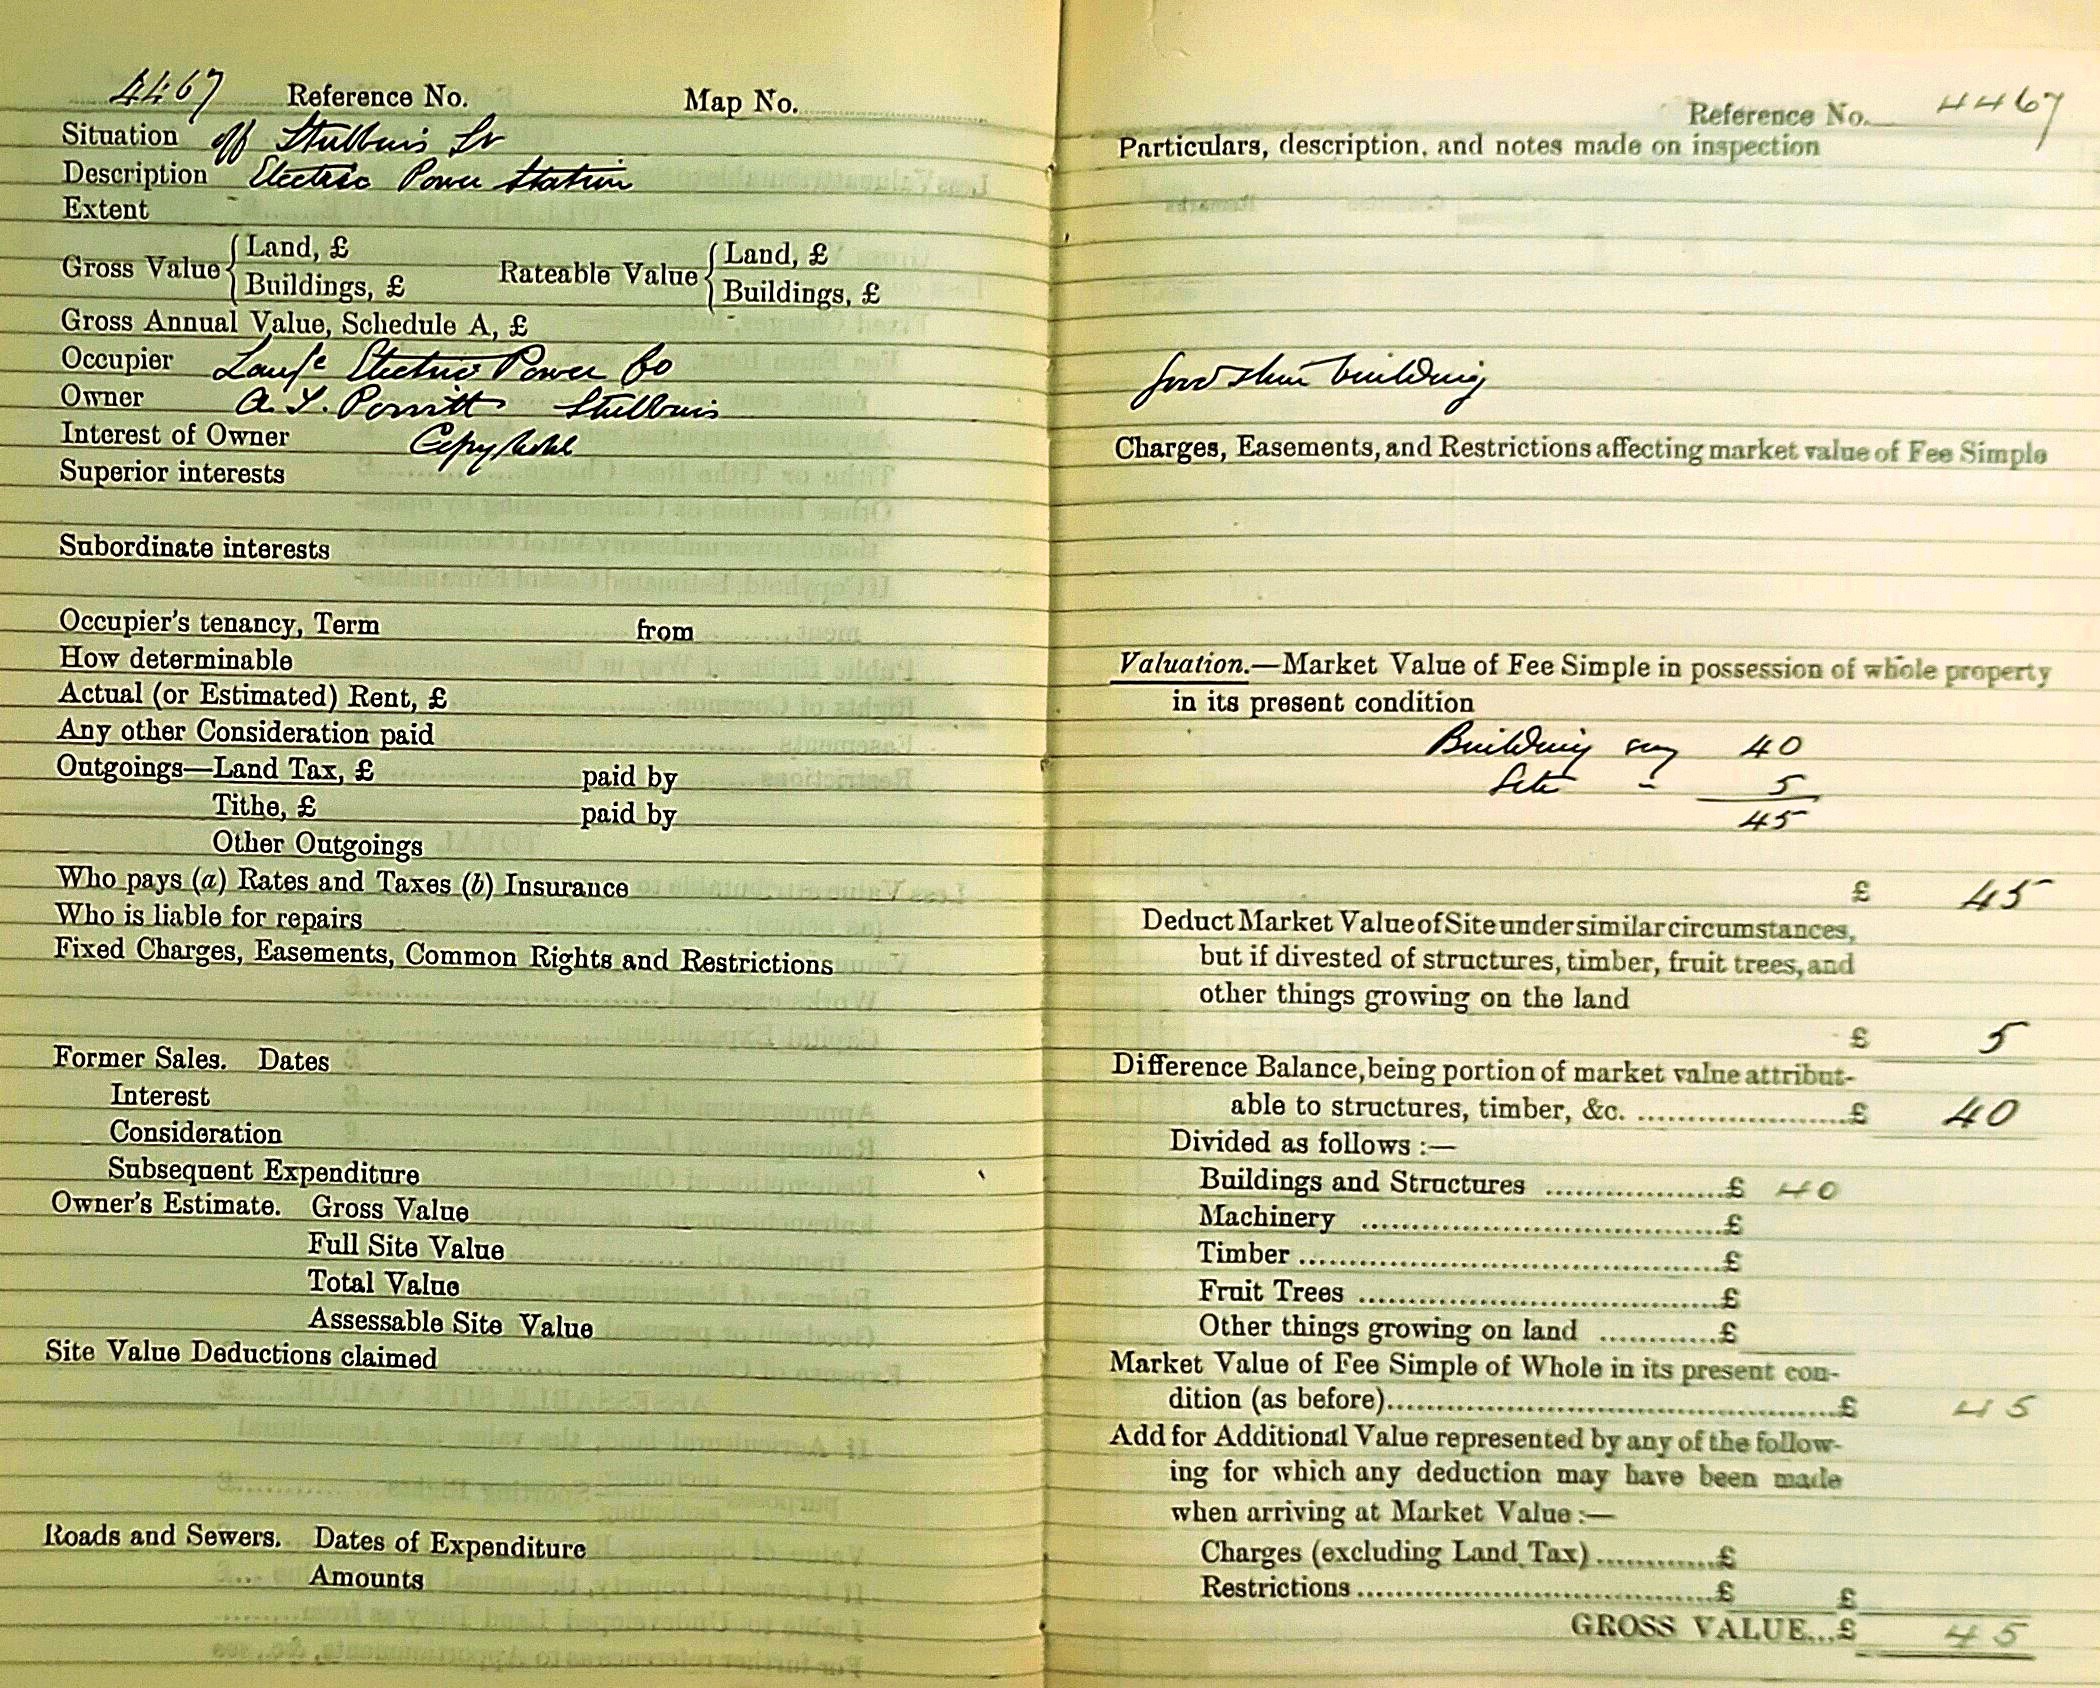 4467 Reference No. Map No.
Situation off Stubbins Ln
Description Electric Power Station
Extent
Gross Value { Land, £ Rateable Value { Land, £
Buildings, £ Buildings, £
Gross Annual Value, Schedule A, £
Occupier Electric Power Co
Owner A. T. Porritt Stubbins
Interest of Owner Copyhold
Superior interests
Subordinate interests
Occupier's tenancy, Term from
How determinable
Actual (or Estimated) Rent, £
Any other Consideration paid
Outgoings—Land Tax, £ paid by
Tithe, £ paid by
Other Outgoings
Who pays (a) Rates and Taxes (b) Insurance
Who is liable for repairs
Fixed Charges, Easements, Common Rights and Restrictions
Former Sales. Dates
Interest
Consideration
Subsequent Expenditure
Owner's Estimate. Gross Value
Full Site Value
Total Value
Assessable Site Value
Site Value Deductions claimed
Roads and Sewers. Dates of Expenditure
Amounts
Reference No. 4467
Particulars, description, and notes made on inspection
building
Charges, Easements, and Restrictions affecting market value of Fee Simple
Valuation.—Market Value of Fee Simple in possession of whole property
in its present condition
Building say 40
Site " 5
45
£ 45
Deduct Market Value of Site under similar circumstances,
but if divested of structures, timber, fruit trees, and
other things growing on the land
£ 5
Difference Balance, being portion of market value attribut-
able to structures, timber, &c. ........ £ 40
Divided as follows :—
Buildings and Structures ........ £ 40
Machinery ........ £
Timber ........ £
Fruit Trees ........ £
Other things growing on land ........ £
Market Value of Fee Simple of Whole in its present con-
dition (as before) ........ £ 45
Add for Additional Value represented by any of the follow-
ing for which any deduction may have been made
when arriving at Market Value :—
Charges (excluding Land Tax) ........ £
Restrictions ........ £ £
GROSS VALUE... £ 45